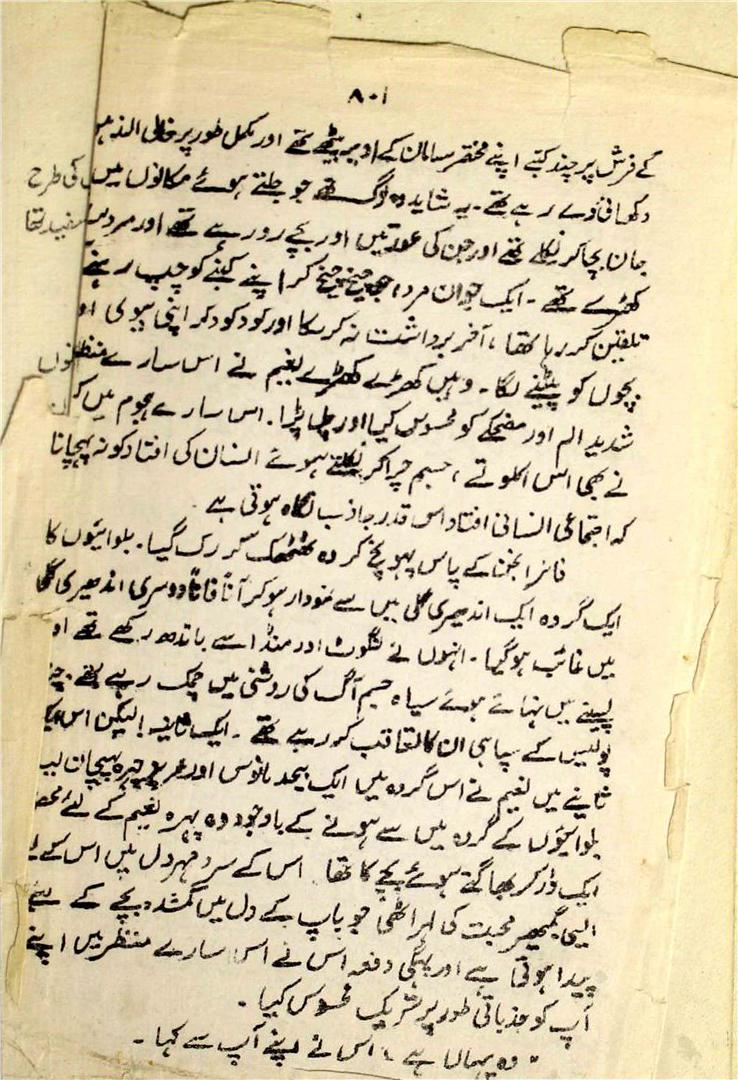 ۸۰۱
کے فرش پر چند کتبے اپنے مختصر سامان کے اوپر بیٹھے تھے اور مکمل طور پر خالی الذہن
دکھائی دے رہے تھے۔ یہ شاید وہ لوگ تھے جو جلتے ہوئے مکانوں میں کی طرح
جان بچا کر نکلے تھے اور جن کی عورتیں اور بچے رو رہے تھے اور مرد سفید تھا
کھڑے تھے۔ ایک جوان مرد، جو چیخ چیخ کر اپنے کنبے کو چپ رہنے
تلقین کر رہا تھا، آخر برداشت نہ کر سکا اور کود کود کر اپنی بیوی او
بچوں کو پیٹنے لگا۔ وہیں کھڑے کھڑے نعیم نے اس سارے منظر
شدید الم اور مضحکے کو محسوس کیا اور چل پڑا۔ اس سارے ہجوم میں ک
نے بھی اس اکلوتے، جسم چرا کر نکلتے ہوئے انسان کی افتاد کو نہ پہچانا
کہ اجتماعی انسانی افتاد اس قدر جاذب نگاہ ہوتی ہے۔
فائر انجن کے پاس پہونچ کر وہ ٹھٹھک کر رک گیا۔ بلوائیوں کا
ایک گروہ ایک اندھیری گلی میں سے نمودار ہو کر آناً فاناً دوسری اندھیری گلی
میں غائب ہو گیا۔ انہوں نے لنگوٹ اور منڈاسے باندھ رکھے تھے او
پسینے میں نہائے ہوئے سیاہ جسم آگ کی روشنی میں چمک رہے تھے۔ چن
پولیس کے سپاہی ان کا تعاقب کر رہے تھے۔ ایک ثانیہ! لیکن اس ایک
ثانیے میں نعیم نے اس گروہ میں ایک بیحد مانوس اور عزیز چہرہ پہچان لیا
بلوائیوں کے گروہ میں سے ہونے کے باوجود وہ چہرہ نعیم کے لئے محض
ایک ڈر کر بھاگتے ہوئے بچے کا تھا۔ اس کے سرد مہر دل میں اس کے لئے
ایسی گمبھیر محبت کی لہر اٹھی جو باپ کے دل میں گمشدہ بچے کے لئے
پیدا ہوتی ہے اور پہلی دفعہ اس نے اس سارے منظر میں اپنے
آپ کو جذباتی طور پر شریک محسوس کیا۔
"وہ یہاں ہے، اس نے اپنے آپ سے کہا۔